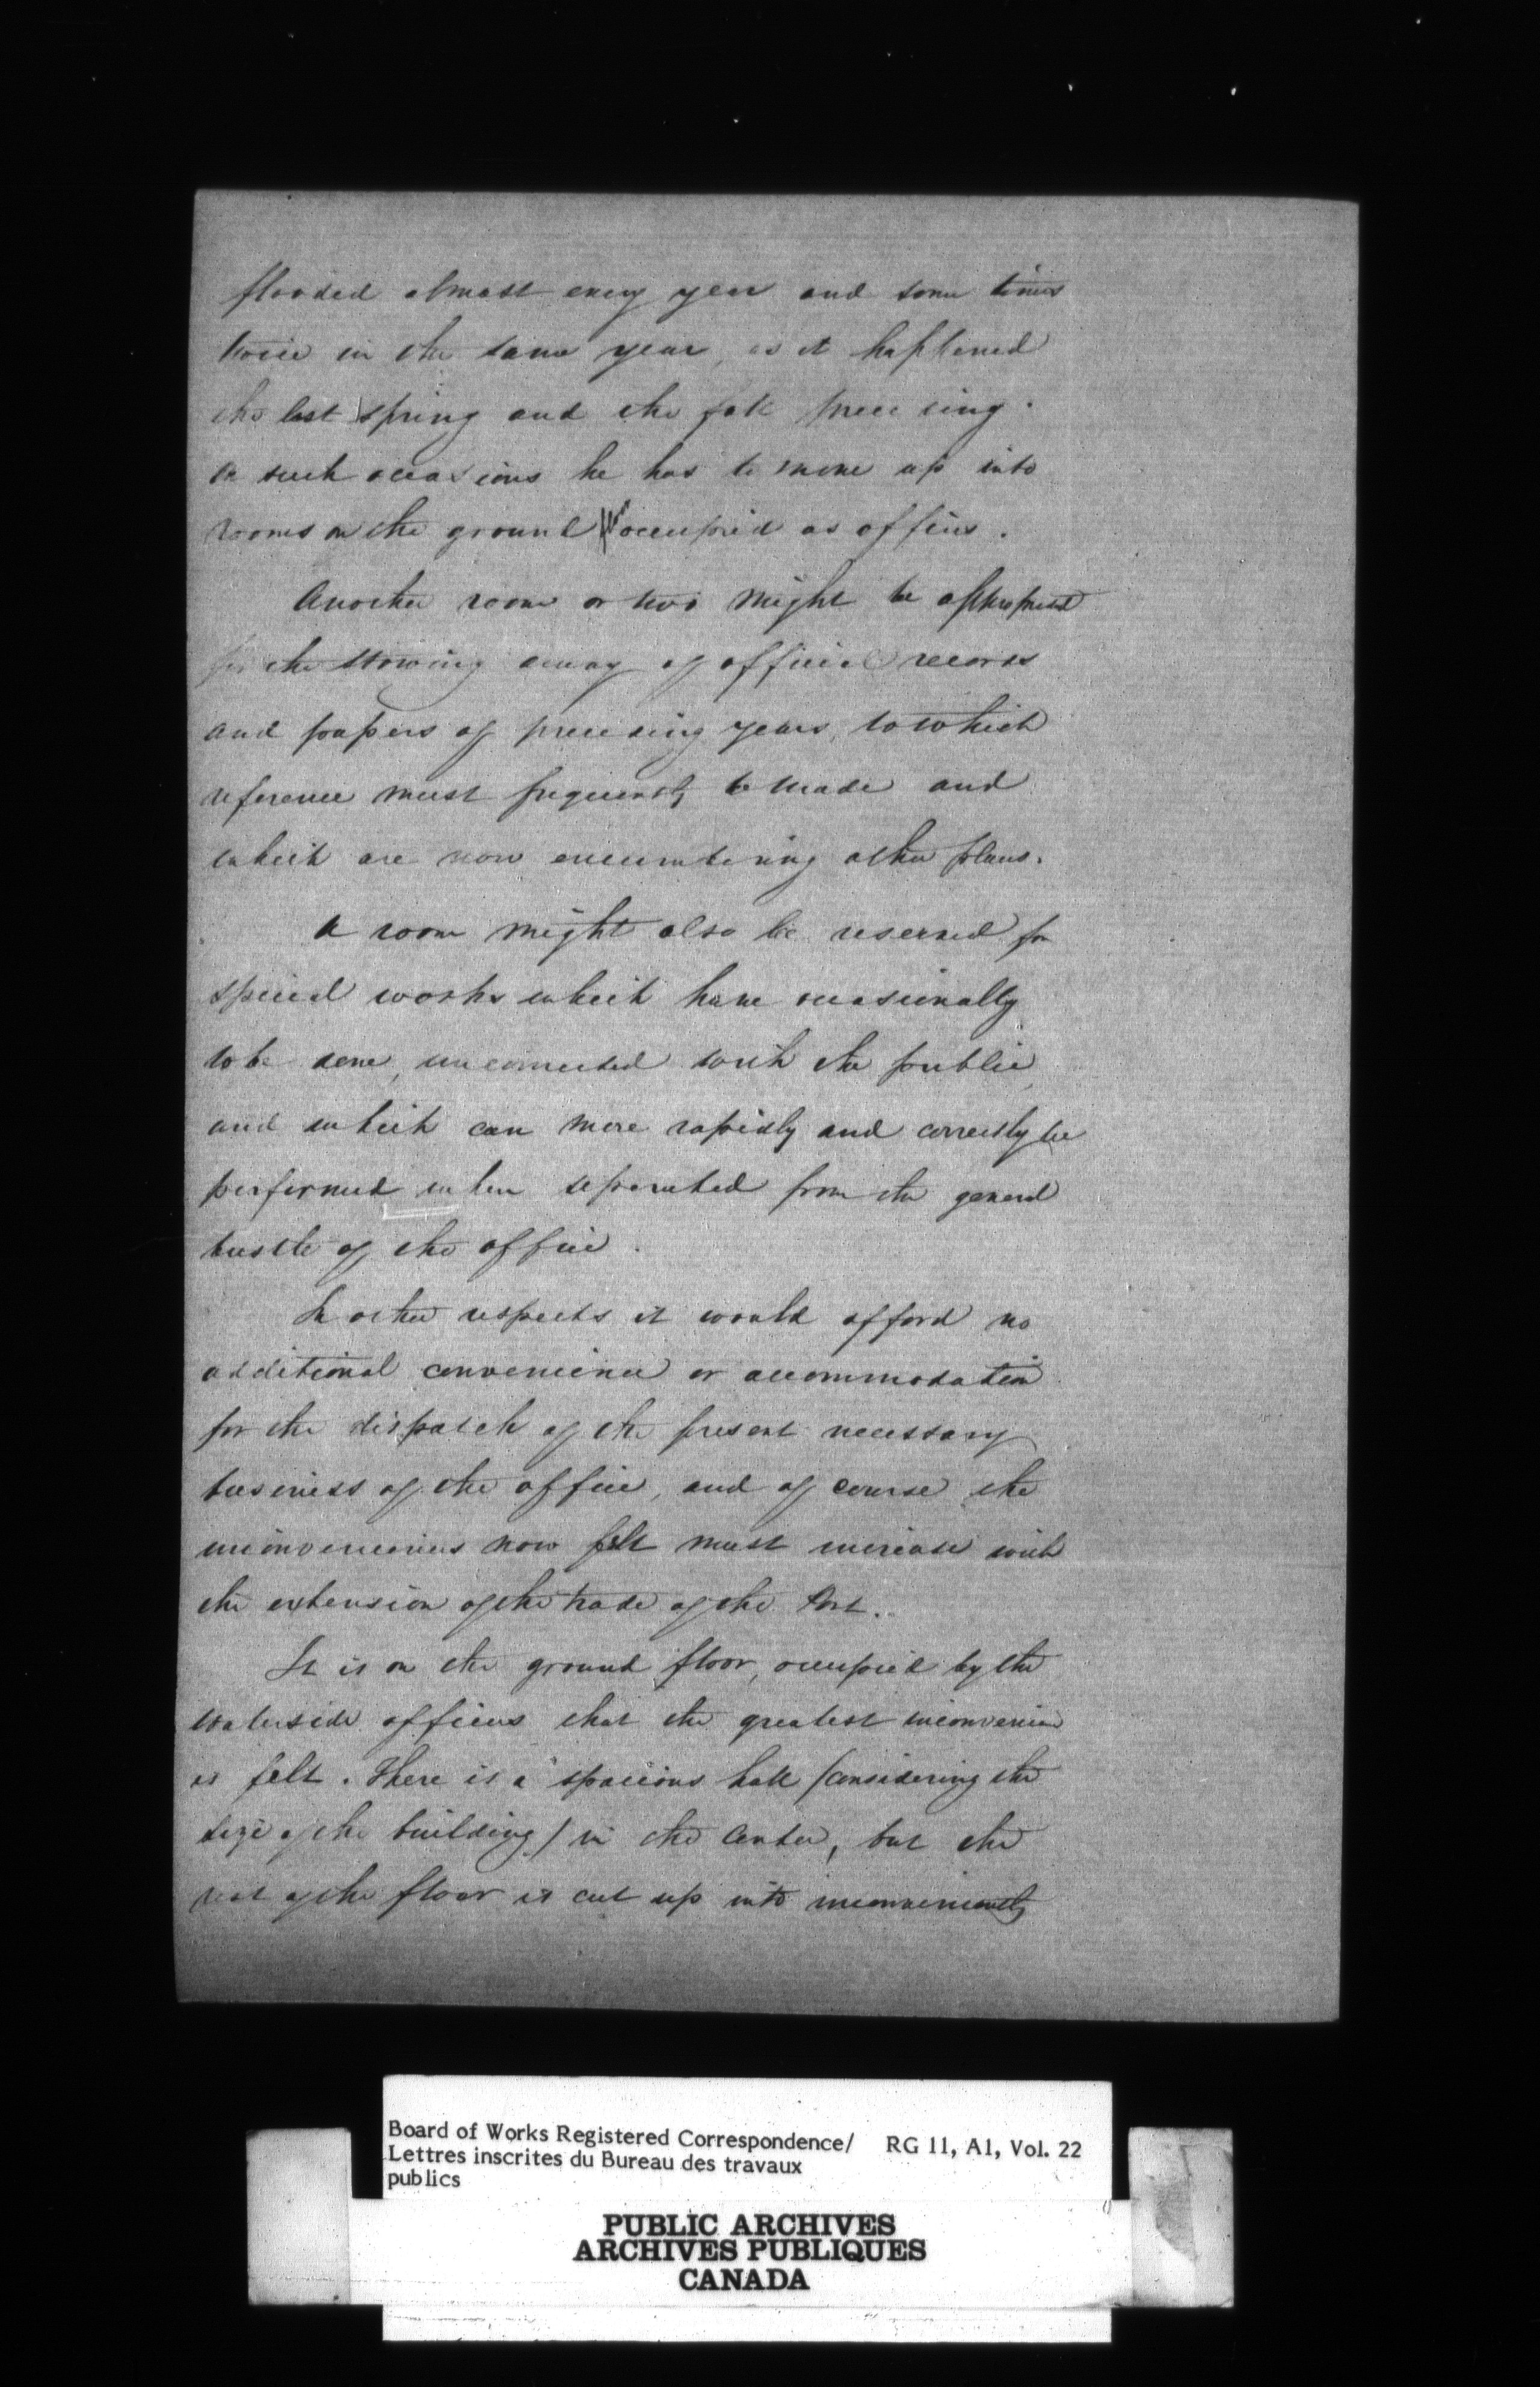 flooded almost every year and some times
twice in the same year, as it happened
the last spring and the fall preceding.
On such occasions he has to move up into
rooms on the ground occupied as offices.
Another room or two might be appropriated
for the stowing away of official records
and papers of preceding years, to which
reference must frequently be made and
which are now encumbering other places.
A room might also be reserved for
special works which have occasionally
to be done, unconnected with the public,
and which can more rapidly and correctly be
performed when separated from the general
bustle of the office.
In other respects it would afford no
additional convenience or accommodation
for the dispatch of the present necessary
business of the office, and of course the
inconveniences now felt must increase with
the extension of the trade of the Port.
It is on the ground floor, occupied by the
waterside officers that the greatest inconvenience
is felt. There is a spacious hall (considering the
size of the building) in the Center, but the
rest of the floor is cut up into inconveniently
Board of Works Registered Correspondence/ RG 11, A1, Vol. 22
Lettres inscrites du Bureau des travaux
publics
PUBLIC ARCHIVES
ARCHIVES PUBLIQUES
CANADA